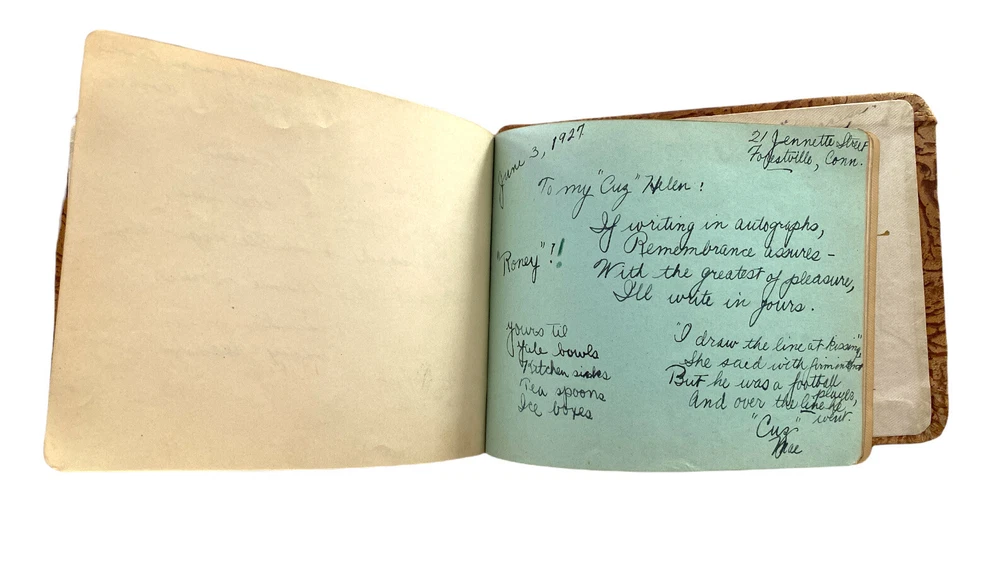 June 3, 1927
21 Jennette Street
Forestville, Conn.
To my "Cuz" Helen!
If writing in autographs,
Remembrance assures -
With the greatest of pleasure,
I'll write in yours.
"Roney"!!
yours til
Yale bowls
Kitchen sinks
Tea spoons
Ice boxes
"I draw the line at kissing"
She said with firm intent
But he was a football
player,
And over the line he
went.
"Cuz"
Mae